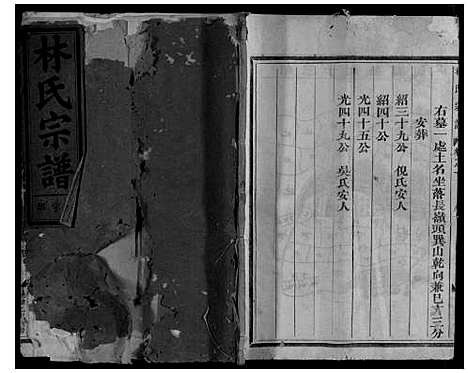 林氏宗譜
右墓一處土名坐落長嶺頭巽山乾向兼巳亥三分
安葬
紹三十九公　倪氏安人
紹四十公
光四十五公
光四十九公　吳氏安人